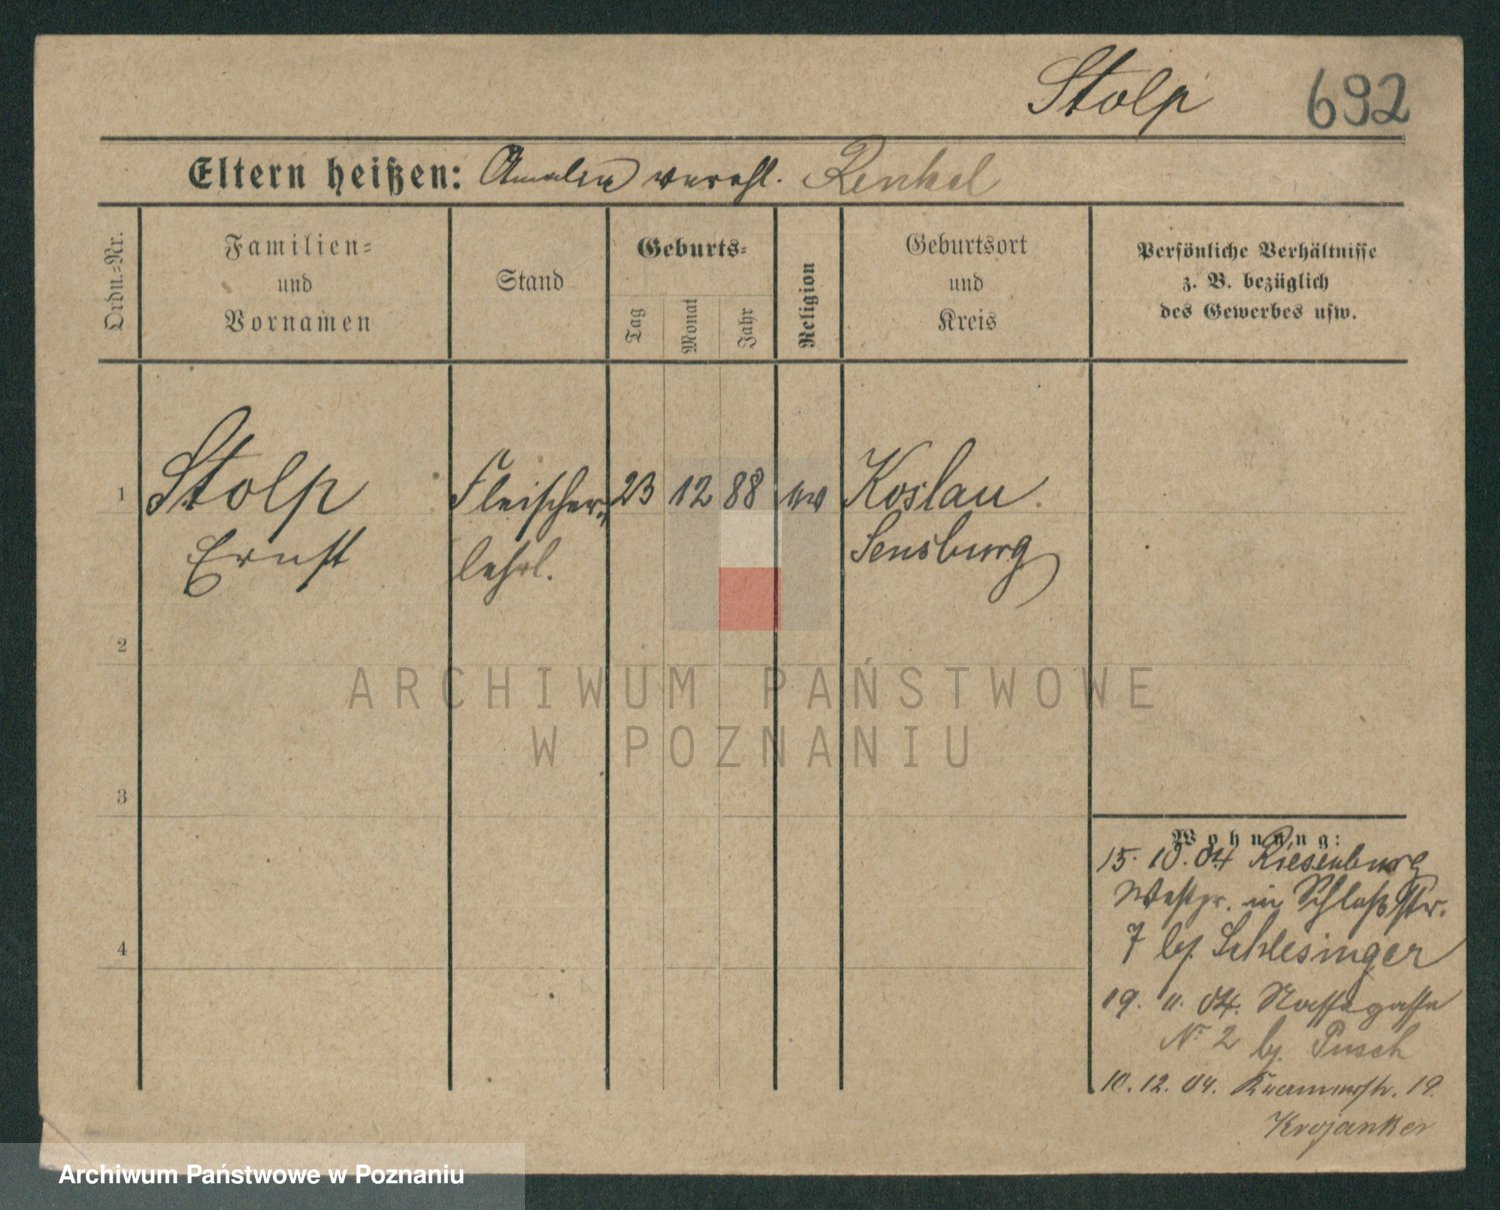 Stolp 692
Eltern heißen: Amalie verehl. Renkel
Ordn.-Nr.
Familien-
und
Vornamen
Stand
Geburts-
Tag
Monat
Jahr
Religion
Geburtsort
und
Kreis
Persönliche Verhältnisse
z. B. bezüglich
des Gewerbes usw.
1 Stolp Fleischer- 23 12 88 ev Koslau
Ernst lehrl. Sensburg
2
ARCHIWUM PAŃSTWOWE
W POZNANIU
3
Wohnung:
15. 10. 04 Riesenburg
Westpr. in Schloßstr.
4
7 bei Schlesinger
19. 11. 04. Nassegasse
No 2 bei Pusch
10. 12. 04. 19.
Krojanker
Archiwum Państwowe w Poznaniu